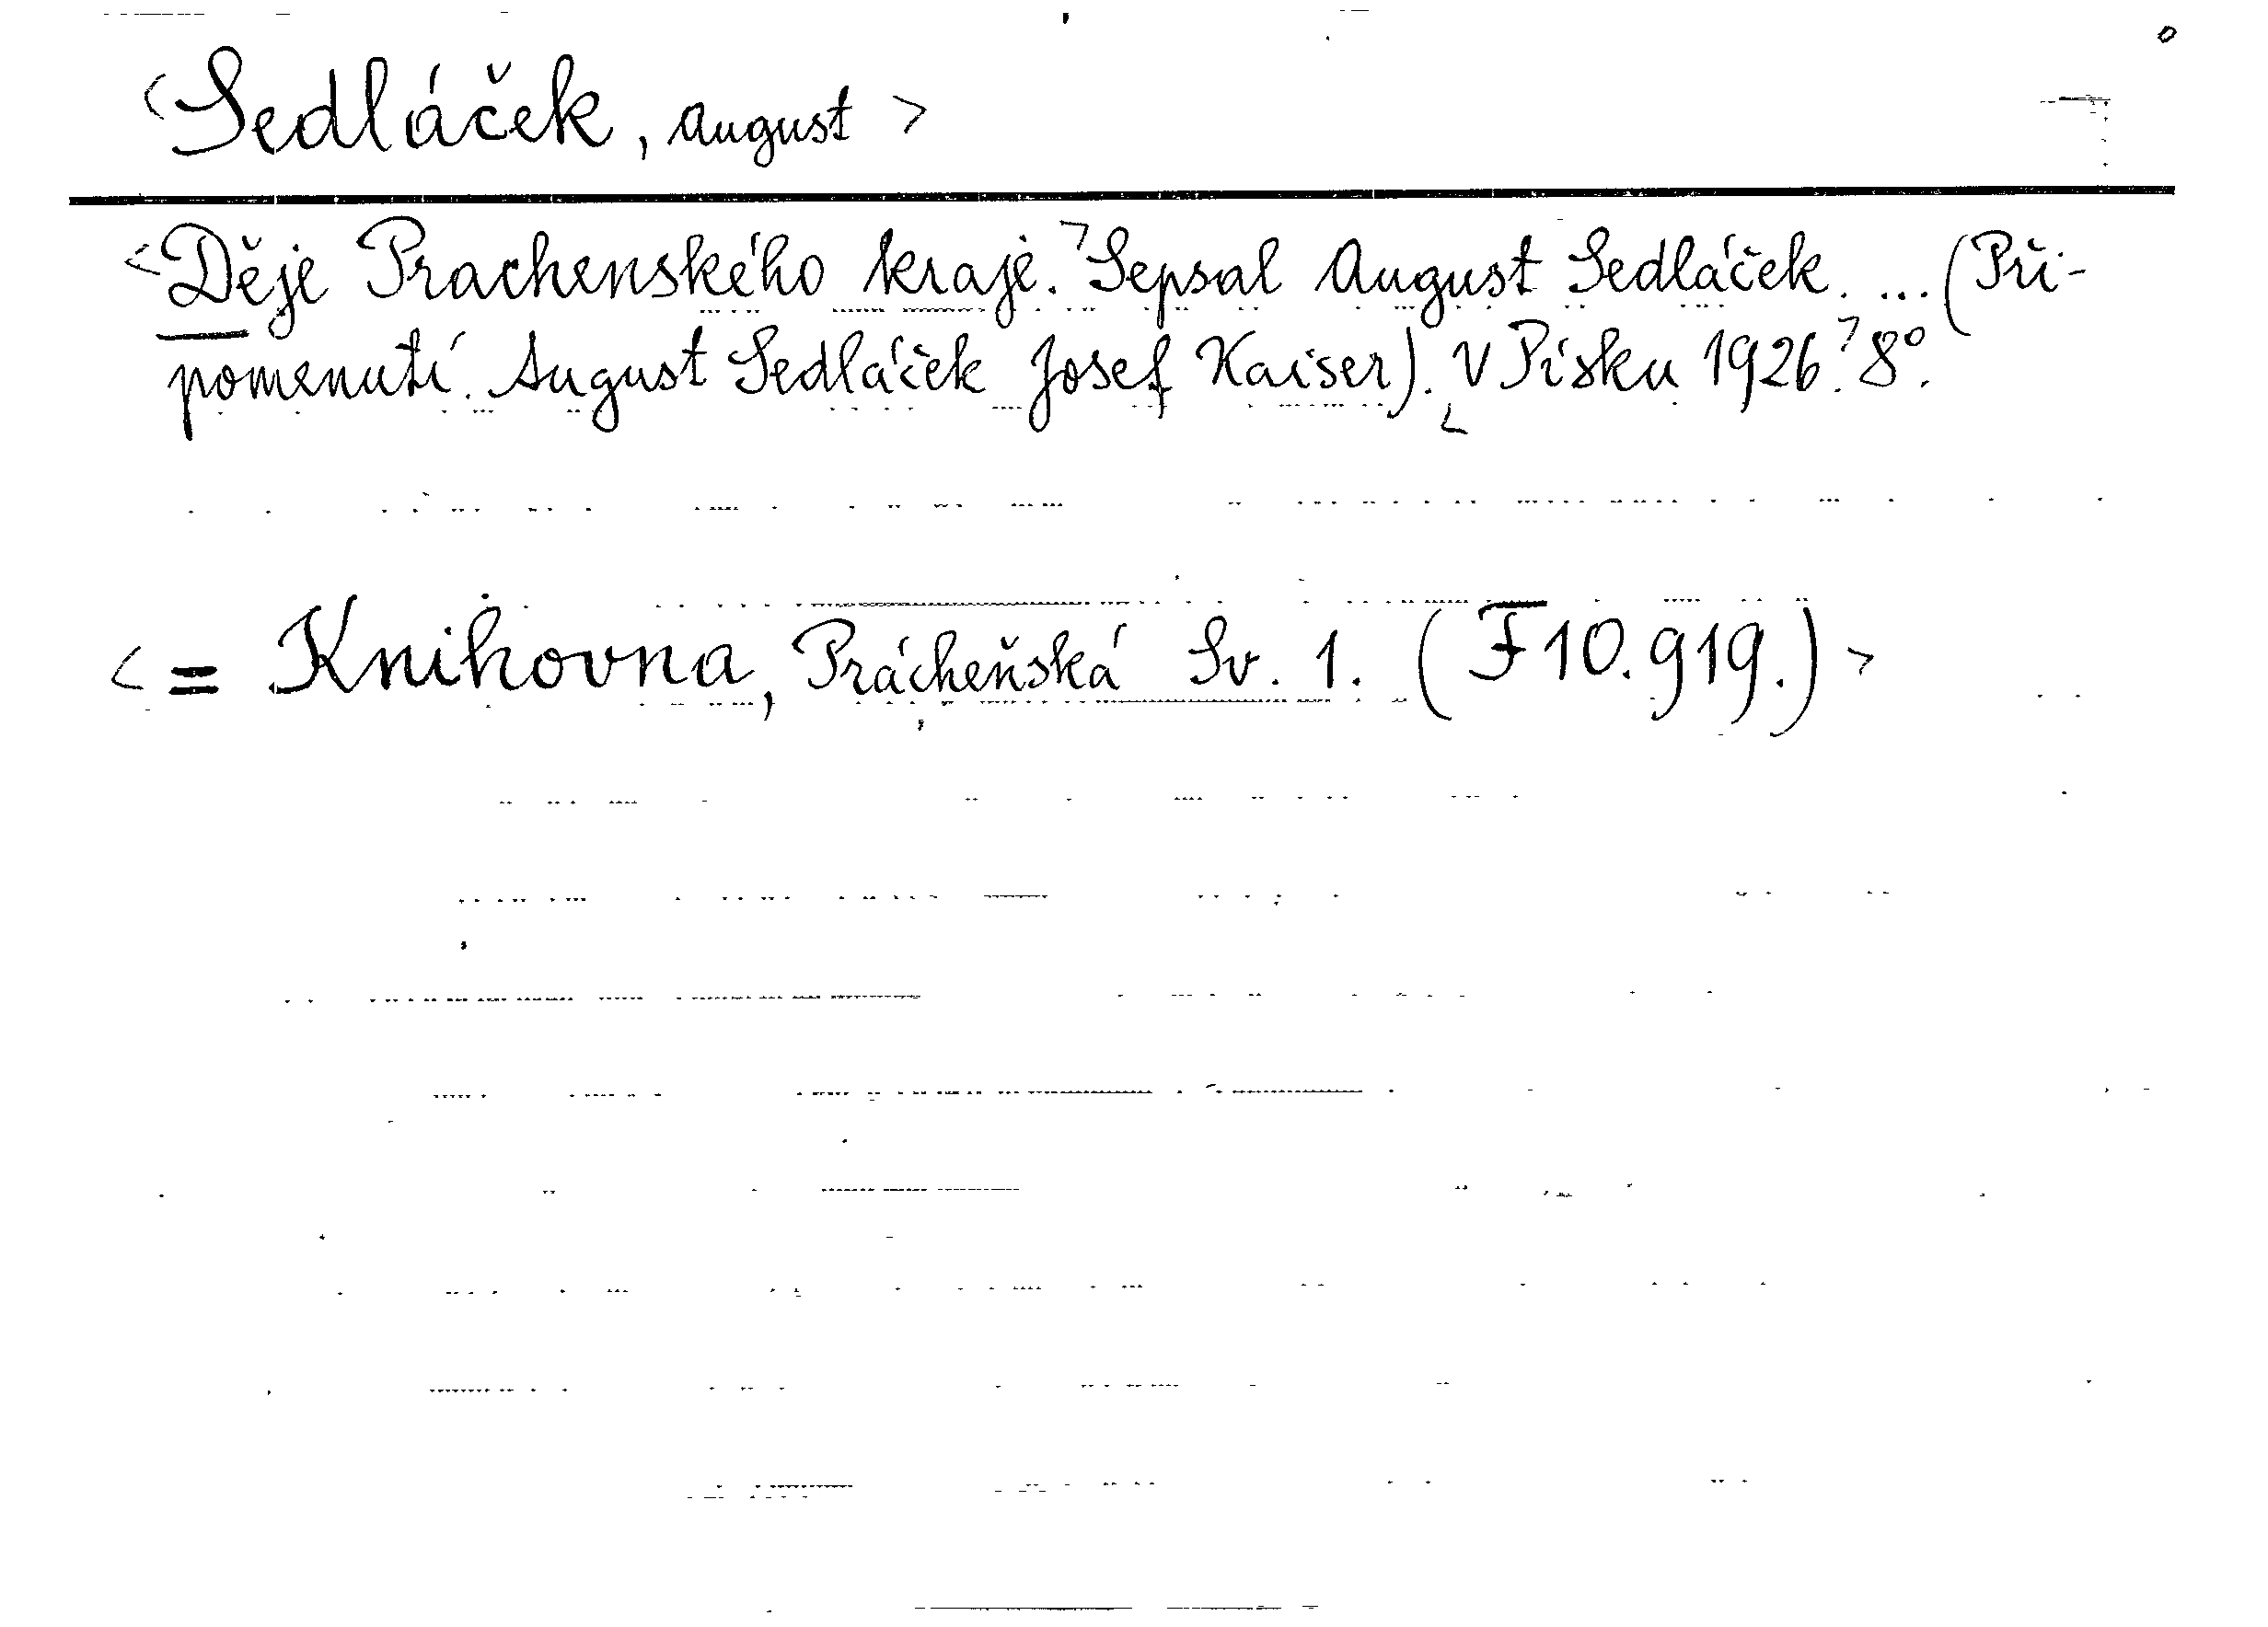 <Sedláček, August>
<Děje Prachenského kraje.> Sepsal August Sedláček. ... (Při-
pomenutí. August Sedláček Josef Kaiser). <V Písku 1926.> 8°.
<= Knihovna, Prácheňská Sv. 1. (F10.919.)>